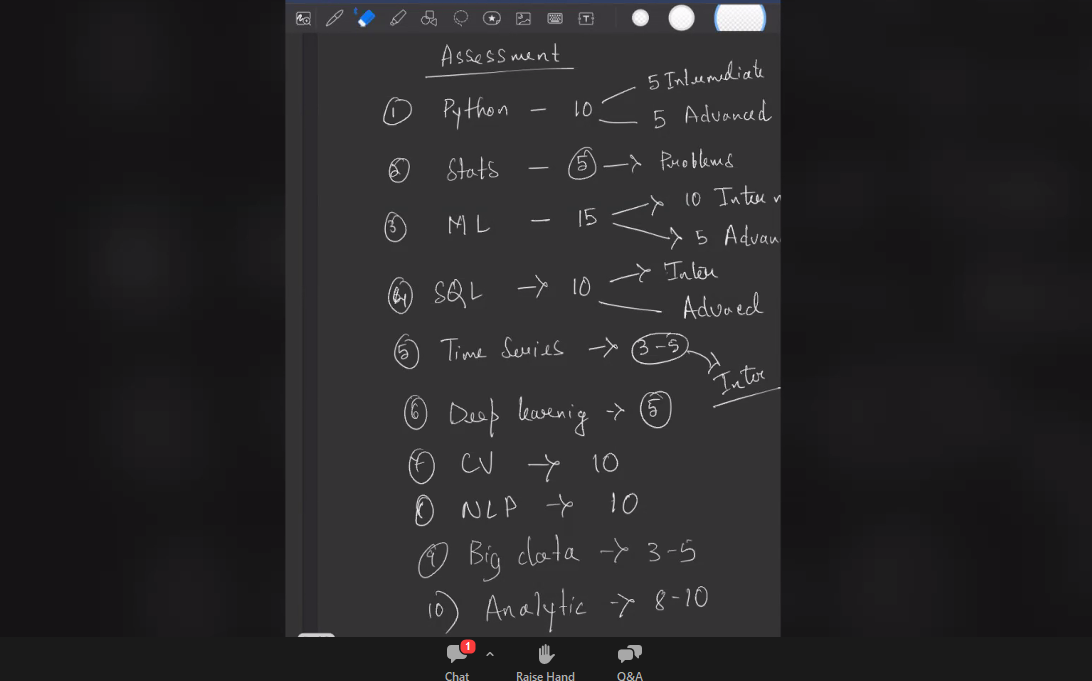 Assessment
① Python - 10
5 Intermediate
5 Advanced
② Stats - 5 → Problems
③ ML - 15
→ 10 Inter
→ 5 Advan
④ SQL → 10
→ Inter
Advaced
⑤ Time Series → 3-5
Inter
⑥ Deep learnig → 5
⑦ CV → 10
⑧ NLP → 10
⑨ Big data → 3-5
10) Analytic → 8-10
1
Chat
Raise Hand
Q&A